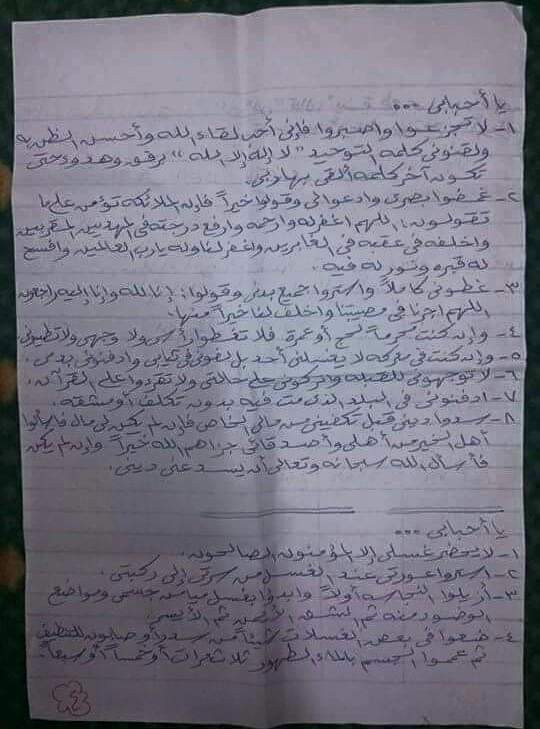 يا أحبابى ...
١- لا تجزعوا واصبروا فإنى أحب لقاء الله وأحسن الظن به
ولقنونى كلمة التوحيد "لا إله إلا الله" برفق وهدوء حتى
تكون آخر كلمة ألقى بها ربى.
٢- غمضوا بصرى وادعوا لى وقولوا خيراً فإن الملائكة تؤمن على ما
تقولون: اللهم اغفر له وارحمه وارفع درجته فى المهديين المقربين
واخلفه فى عقبه فى الغابرين واغفر لنا وله يارب العالمين وافسح
له قبره ونور له فيه.
٣- غطونى كاملاً واستروا جميع بدنى وقولوا: إنا لله وإنا إليه راجعون
اللهم اجرنا فى مصيبتنا واخلف لنا خيراً منها.
٤- وإن كنت محرماً لحج أو عمرة فلا تغطوا رأسى ولا وجهى ولا تطيبونى
٥- وإن كنت فى معركة لا يغسلنى أحد بل لفونى فى ثيابى وادفنونى بدمى.
٦- لا توجهونى للقبلة واتركونى على حالتى ولا تقرءوا على القرآن.
٧- ادفنونى فى البلد الذى مت فيه بدون تكلف أو مشقة.
٨- سدوا دينى قبل تكفينى من مالى الخاص فإن لم يكن لى مال فاسألوا
أهل الخير من أهلى وأصدقائى جزاهم الله خيراً وإن لم يكن
فأسأل الله سبحانه وتعالى أن يسد عنى دينى.
يا أحبابى ...
١- لا يحضر غسلى إلا المؤمنون الصالحون.
٢- استروا عورتى عند الغسل من سرتى إلى ركبتى.
٣- أزيلوا النجاسة أولاً وابدؤا بغسل ميامن جسمى ومواضع
الوضوء منه ثم الشق الأيمن ثم الأيسر.
٤- ضعوا فى بعض الغسلات شيئاً من سدر أو صابون للتنظيف
ثم عمموا الجسم بالماء الطهور ثلاث مرات أو خمساً أو سبعاً.